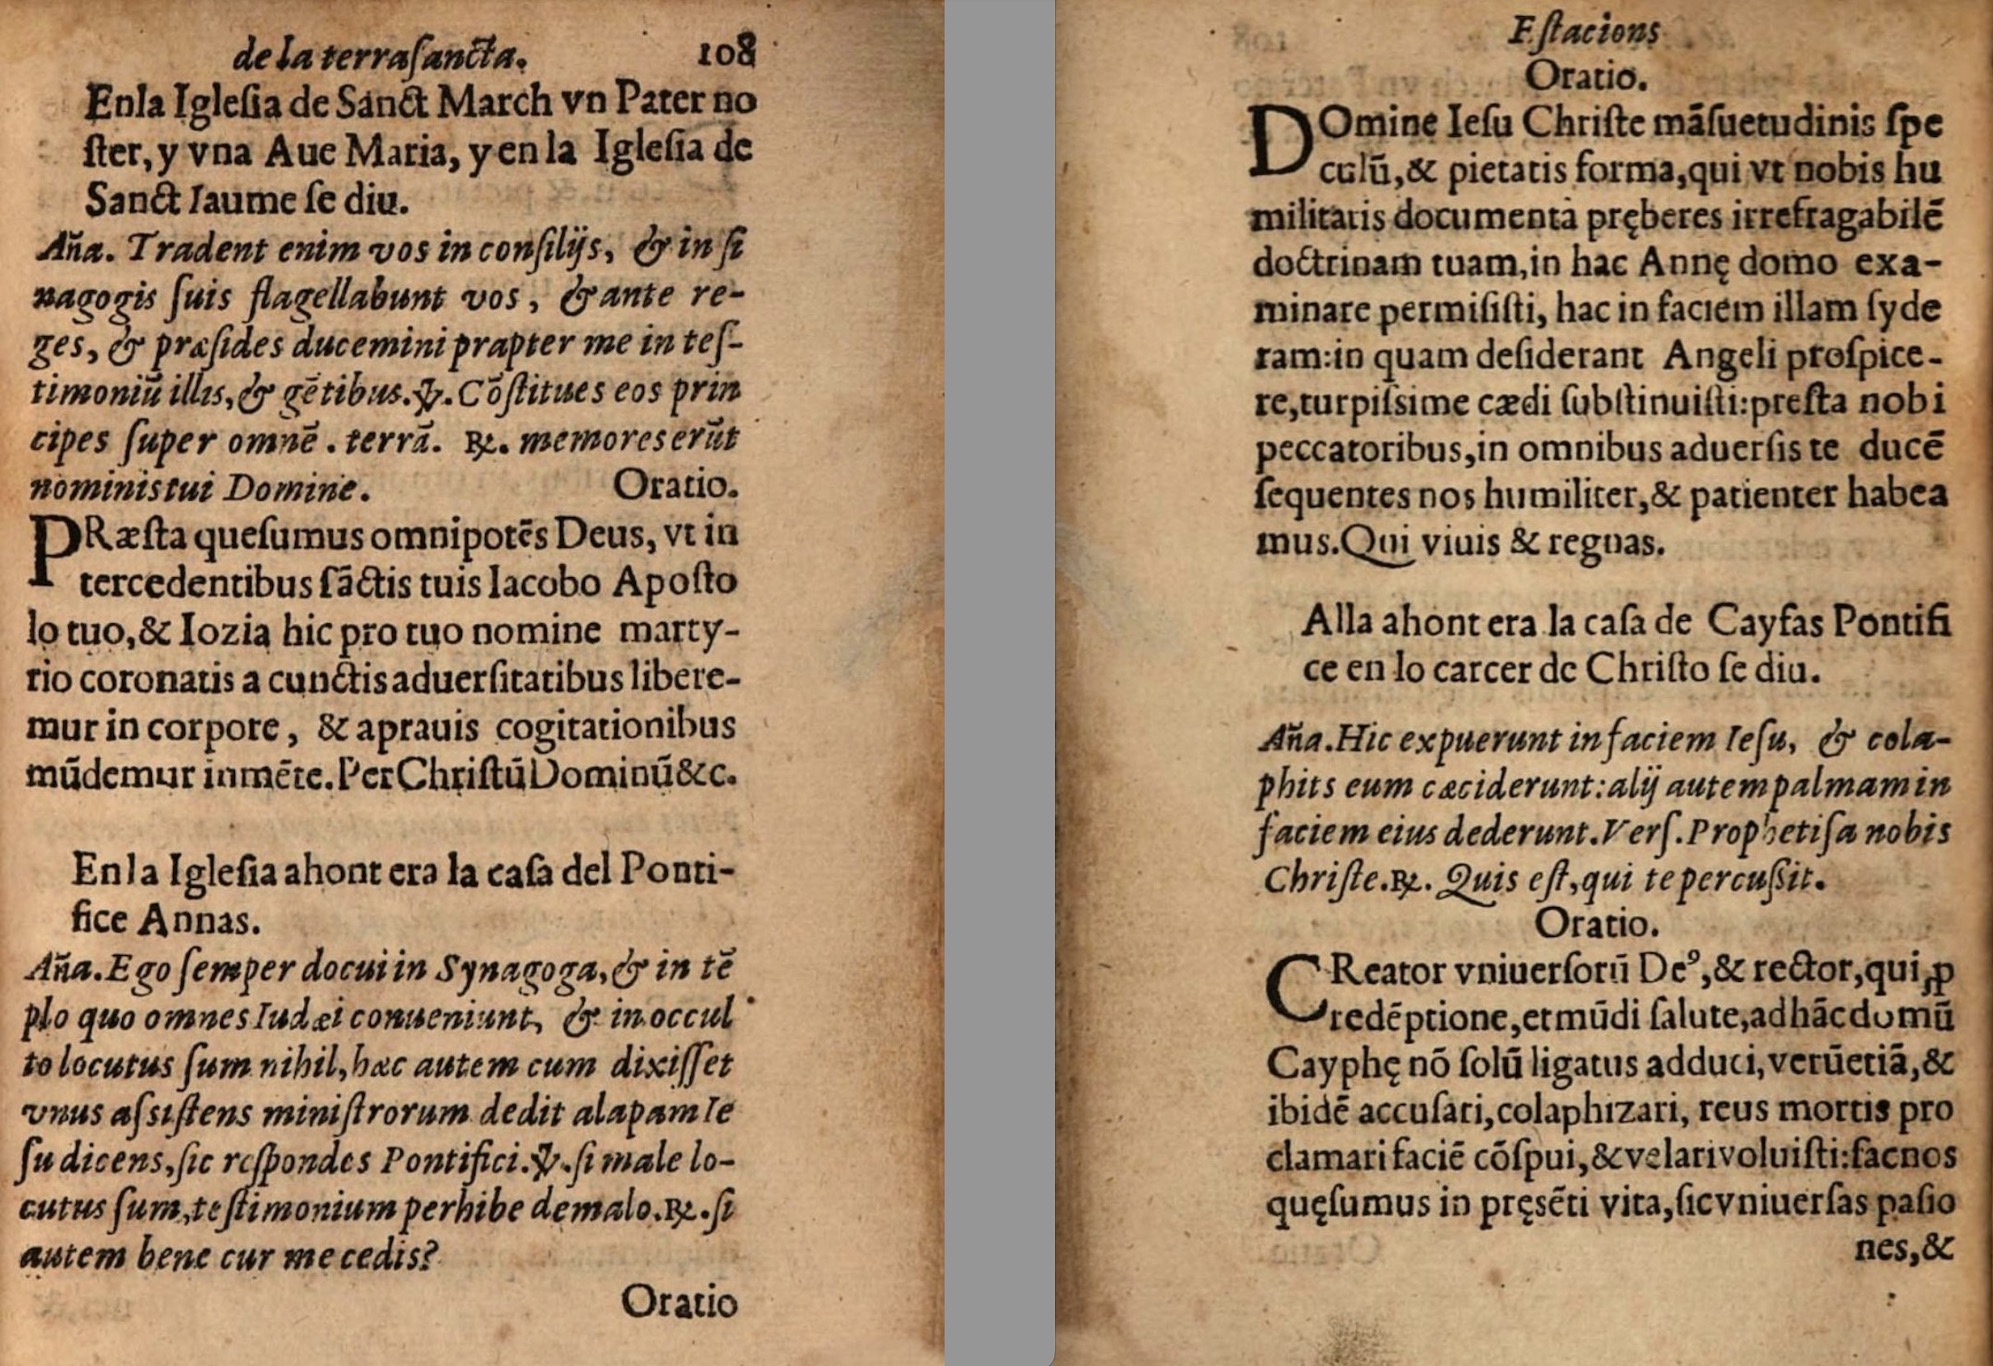 de la terra ſancta. 108
En la Igleſia de Sanct March vn Pater no
ſter, y vna Aue Maria, y en la Igleſia de
Sanct Iaume ſe diu.
Aña. Tradent enim vos in conſilijs, & in ſi
nagogis ſuis flagellabunt vos, & ante re-
ges, & præſides ducemini prapter me in teſ-
timoniũ illis, & gẽtibus. ℣. Cõſtitues eos prin
cipes ſuper omnẽ. terrã. ℟. memores erũt
nominis tui Domine. Oratio.
PRæſta queſumus omnipotẽs Deus, vt in
tercedentibus ſãctis tuis Iacobo Apoſto
lo tuo, & Iozia hic pro tuo nomine marty-
rio coronatis a cunctis aduerſitatibus libere-
mur in corpore, & aprauis cogitationibus
mũdemur in mẽte. Per Chriſtũ Dominũ &c.
En la Igleſia ahont era la caſa del Ponti-
fice Annas.
Aña. Ego ſemper docui in Synagoga, & in tẽ
plo quo omnes Iudæi conueniunt, & in occul
to locutus ſum nihil, hæc autem cum dixiſſet
vnus aſsiſtens miniſtrorum dedit alapam Ie
ſu dicens, ſic reſpondes Pontifici. ℣. ſi male lo-
cutus ſum, teſtimonium perhibe de malo. ℟. ſi
autem bene cur me cedis?
Oratio
Eſtacions
Oratio.
DOmine Ieſu Chriſte mãſuetudinis ſpe
culũ, & pietatis forma, qui vt nobis hu
militatis documenta pręberes irrefragabilẽ
doctrinam tuam, in hac Annę domo exa-
minare permiſiſti, hac in faciem illam ſyde
ram: in quam deſiderant Angeli proſpice-
re, turpiſsime cædi ſubſtinuiſti: preſta nobi
peccatoribus, in omnibus aduerſis te ducẽ
ſequentes nos humiliter, & patienter habea
mus. Qui viuis & regnas.
Alla ahont era la caſa de Cayfas Pontifi
ce en lo carcer de Chriſto ſe diu.
Aña. Hic expuerunt in faciem Ieſu, & cola-
phits eum cæciderunt: alij autem palmam in
faciem eius dederunt. Verſ. Prophetiſa nobis
Chriſte. ℟. Quis eſt, qui te percuſsit.
Oratio.
CReator vniuerſorũ Deꝰ, & rector, qui ꝓ
redẽptione, et mũdi ſalute, ad hãc domũ
Cayphę nõ ſolũ ligatus adduci, verũetiã, &
ibidẽ accuſari, colaphizari, reus mortis pro
clamari faciẽ cõſpui, & velari voluiſti: fac nos
quęſumus in pręsẽti vita, ſic vniuerſas paſio
nes, &